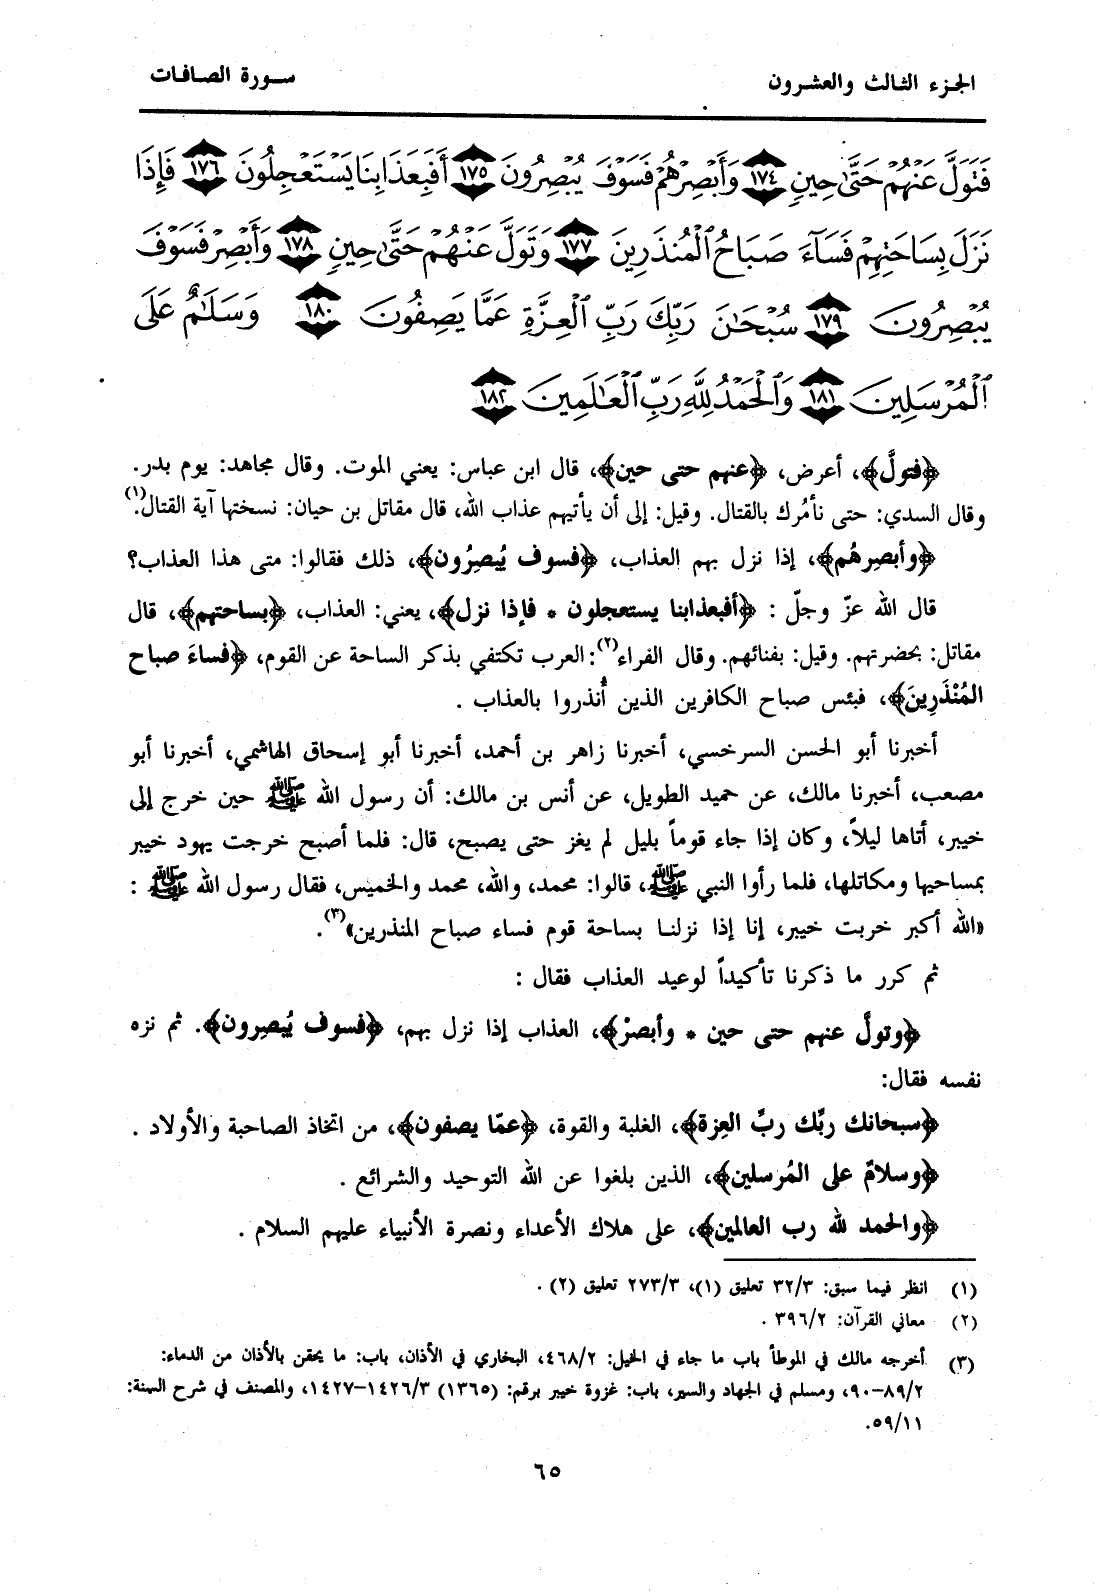 الجزء الثالث والعشرون
سورة الصافات
فَتَوَلَّ عَنْهُمْ حَتَّىٰ حِينٍ ١٧٤ وَأَبْصِرْهُمْ فَسَوْفَ يُبْصِرُونَ ١٧٥ أَفَبِعَذَابِنَا يَسْتَعْجِلُونَ ١٧٦ فَإِذَا
نَزَلَ بِسَاحَتِهِمْ فَسَآءَ صَبَاحُ ٱلْمُنذَرِينَ ١٧٧ وَتَوَلَّ عَنْهُمْ حَتَّىٰ حِينٍ ١٧٨ وَأَبْصِرْ فَسَوْفَ
يُبْصِرُونَ ١٧٩ سُبْحَٰنَ رَبِّكَ رَبِّ ٱلْعِزَّةِ عَمَّا يَصِفُونَ ١٨٠ وَسَلَٰمٌ عَلَى
ٱلْمُرْسَلِينَ ١٨١ وَٱلْحَمْدُ لِلَّهِ رَبِّ ٱلْعَٰلَمِينَ ١٨٢
﴿فتولَّ﴾، أعرض، ﴿عنهم حتى حين﴾، قال ابن عباس: يعني الموت. وقال مجاهد: يوم بدر.
وقال السدي: حتى نأمُرك بالقتال. وقيل: إلى أن يأتيهم عذاب الله، قال مقاتل بن حيان: نسختها آية القتال.(١)
﴿وأبصِرهُم﴾، إذا نزل بهم العذاب، ﴿فسوف يُبصِرُون﴾، ذلك فقالوا: متى هذا العذاب؟
قال الله عزّ وجلّ : ﴿أفبعذابنا يستعجلون * فإذا نزل﴾، يعني: العذاب، ﴿بساحتهم﴾، قال
مقاتل: بحضرتهم. وقيل: بفنائهم. وقال الفراء(٢): العرب تكتفي بذكر الساحة عن القوم، ﴿فساءَ صباح
المُنْذَرِينَ﴾، فبئس صباح الكافرين الذين أُنذروا بالعذاب .
أخبرنا أبو الحسن السرخسي، أخبرنا زاهر بن أحمد، أخبرنا أبو إسحاق الهاشمي، أخبرنا أبو
مصعب، أخبرنا مالك، عن حميد الطويل، عن أنس بن مالك: أن رسول الله ﷺ حين خرج إلى
خيبر، أتاها ليلاً، وكان إذا جاء قوماً بليل لم يغز حتى يصبح، قال: فلما أصبح خرجت يهود خيبر
بمساحيها ومكاتلها، فلما رأوا النبي ﷺ، قالوا: محمد، والله، محمد والخميس، فقال رسول الله ﷺ :
«الله أكبر خربت خيبر، إنا إذا نزلنا بساحة قوم فساء صباح المنذرين»(٣).
ثم كرر ما ذكرنا تأكيداً لوعيد العذاب فقال :
﴿وتولَّ عنهم حتى حين * وأبصرْ﴾، العذاب إذا نزل بهم، ﴿فسوف يُبصِرون﴾. ثم نزه
نفسه فقال:
﴿سبحانك ربِّك ربِّ العِزة﴾، الغلبة والقوة، ﴿عمّا يصفون﴾، من اتخاذ الصاحبة والأولاد .
﴿وسلامٌ على المُرسلين﴾، الذين بلغوا عن الله التوحيد والشرائع .
﴿والحمد لله رب العالمين﴾، على هلاك الأعداء ونصرة الأنبياء عليهم السلام .
(١) انظر فيما سبق: ٣٢/٣ تعليق (١)، ٢٧٣/٣ تعليق (٢) .
(٢) معاني القرآن: ٣٩٦/٢ .
(٣) أخرجه مالك في الموطأ باب ما جاء في الخيل: ٤٦٨/٢، البخاري في الأذان، باب: ما يحقن بالأذان من الدماء:
٨٩/٢-٩٠، ومسلم في الجهاد والسير، باب: غزوة خيبر برقم: (١٣٦٥) ١٤٢٦/٣-١٤٢٧، والمصنف في شرح السنة:
٥٩/١١.
٦٥